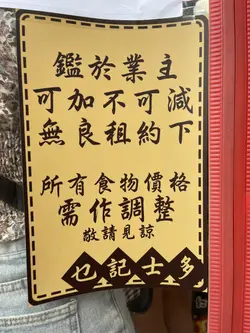 鑑於業主
可加不可減
無良租約下
所有食物價格
需作調整
敬請見諒
多士記乜